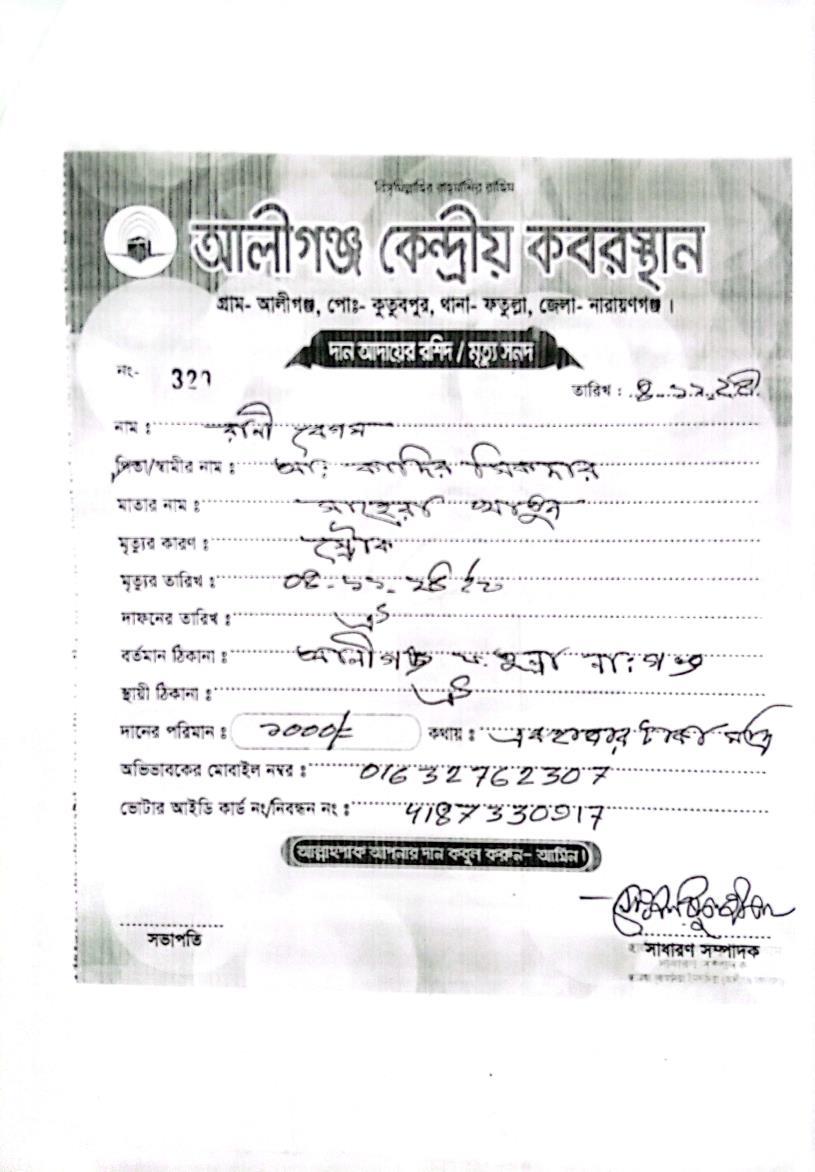 বিসমিল্লাহির রাহমানির রাহিম
আলীগঞ্জ কেন্দ্রীয় কবরস্থান
গ্রাম- আলীগঞ্জ, পোঃ- কুতুবপুর, থানা- ফতুল্লা, জেলা- নারায়ণগঞ্জ ।
দান আদায়ের রশিদ / মৃত্যু সনদ
নং-
তারিখ :
নাম ঃ রানী বেগম
পিতা/স্বামীর নাম ঃ আঃ কাদির সিকদার
মাতার নাম ঃ সাহেরা খাতুন
মৃত্যুর কারণ ঃ স্ট্রোক
মৃত্যুর তারিখ ঃ
দাফনের তারিখ ঃ ঐ
বর্তমান ঠিকানা ঃ আলীগঞ্জ ফতুল্লা না:গঞ্জ
স্থায়ী ঠিকানা ঃ ঐ
দানের পরিমান ঃ ১০০০/= কথায় ঃ একহাজার টাকা মাত্র
অভিভাবকের মোবাইল নম্বর ঃ 01632762307
ভোটার আইডি কার্ড নং/নিবন্ধন নং ঃ 4187330917
আল্লাহপাক আপনার দান কবুল করুন- আমিন।
সভাপতি
সাধারণ সম্পাদক